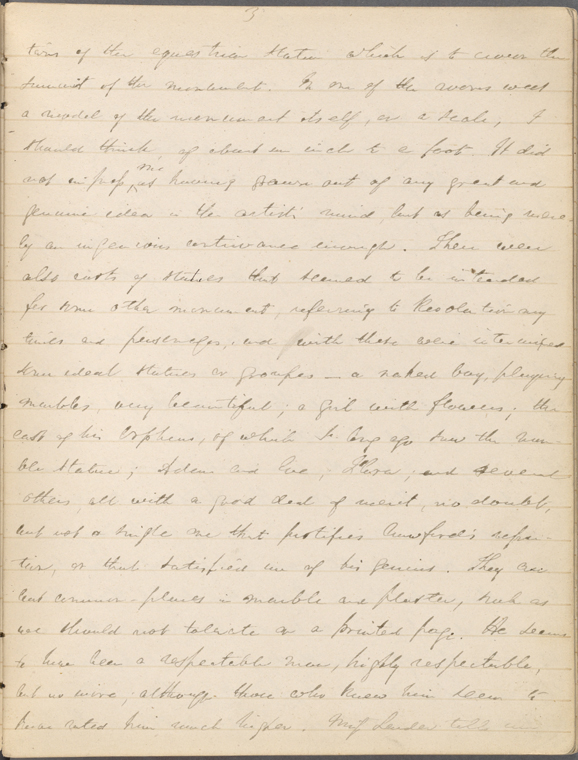 3
tions of the equestrian statue which is to crown the
summit of the monument. In one of the rooms was
a model of the monument itself, on a scale, I
should think, of about an inch to a foot. It did
not impress me as having grown out of any great and
genuine idea in the artist's mind, but as being mere-
ly an ingenious contrivance enough. There were
also casts of statues that seemed to be intended
for some other monument, referring to Revolutionary
times and personages, and with these were intermixed
some ideal statues or groupes — a naked boy, playing
marbles, very beautiful; a girl with flowers; the
cast of his Orpheus, of which I long ago saw the mar-
ble statue; Adam and Eve; Flora; and several
others, all with a good deal of merit, no doubt,
but not a single one that justifies Crawford's reputa-
tion, or that satisfied me of his genius. They are
but common-places in marble and plaster, such as
we should not tolerate on a printed page. He seems
to have been a respectable man, highly respectable,
but no more; although those who knew him seem to
have rated him much higher. Miss Lander tells me